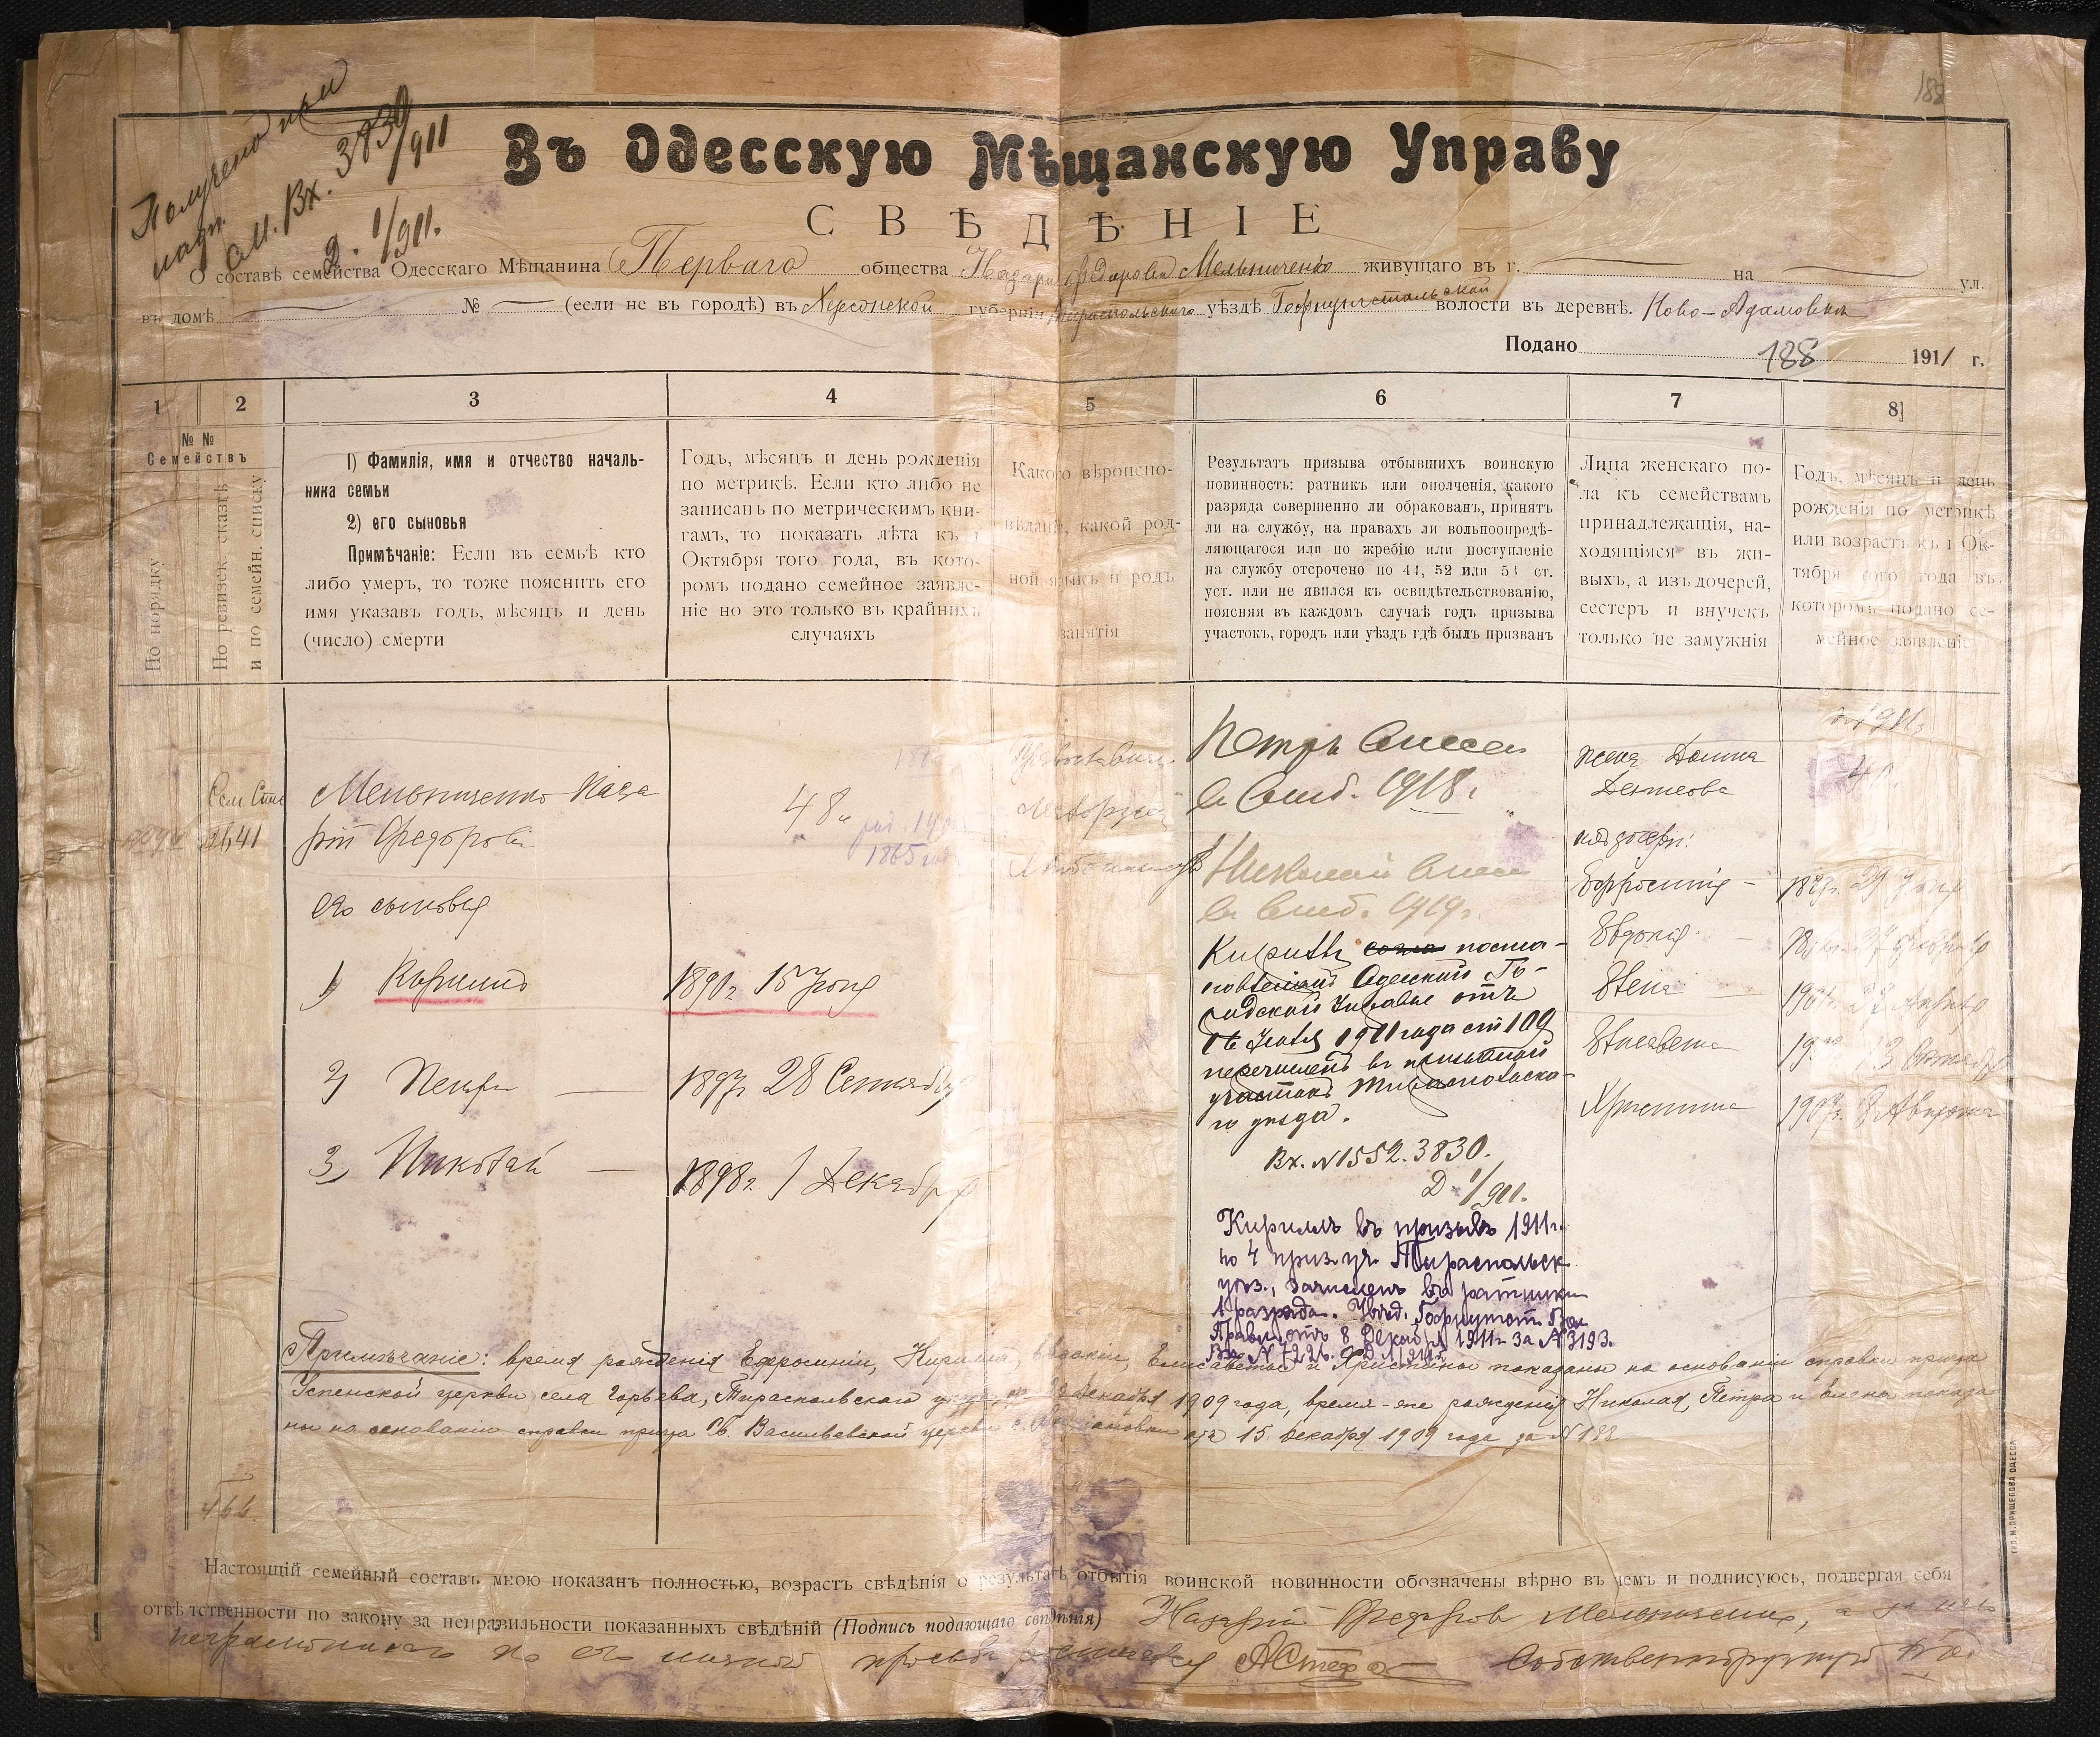 188
Получено при
надп.
См. Вх. 3830/911
Д. 1/911.
Въ Одесскую Мѣщанскую Управу
СВѢДѢНІЕ
О составѣ семейства Одесскаго Мѣщанина Перваго общества Назарія Федорова Мельниченко живущаго въ г. на ул.
въ домѣ № (если не въ городѣ) въ Херсонской губерніи Тираспольскаго уѣздѣ волости въ деревнѣ. Ново-Адамовка
Подано 188 1911 г.
1 2 3 4 5 6 7 8
№ №
Семействъ
По порядку
По ревизск. сказкѣ
и по семейн. списку
1) Фамилія, имя и отчество началь-
ника семьи
2) его сыновья
Примѣчаніе: Если въ семьѣ кто
либо умеръ, то тоже пояснить его
имя указавъ годъ, мѣсяцъ и день
(число) смерти
Годъ, мѣсяцъ и день рожденія
по метрикѣ. Если кто либо не
записанъ по метрическимъ кни-
гамъ, то показать лѣта къ 1
Октября того года, въ кото-
ромъ подано семейное заявле-
ніе но это только въ крайнихъ
случаяхъ
Какого вѣроиспо-
вѣданія, какой род-
ной языкъ и родъ
занятія
Результатъ призыва отбывшихъ воинскую
повинность: ратникъ или ополченія, какого
разряда совершенно ли обракованъ, принятъ
ли на службу, на правахъ ли вольноопредѣ-
ляющагося или по жребію или поступленіе
на службу отсрочено по 44, 52 или 53 ст.
уст. или не явился къ освидѣтельствованію,
поясняя въ каждомъ случаѣ годъ призыва
участокъ, городъ или уѣздъ гдѣ былъ призванъ
Лица женскаго по-
ла къ семействамъ
принадлежащія, на-
ходящіяся въ жи-
выхъ, а изъ дочерей,
сестеръ и внучекъ
только не замужнія
Годъ, мѣсяцъ и день
рожденія по метрикѣ
или возрастъ къ 1 Ок-
тября того года въ
которомъ подано се-
мейное заявленіе
Мельниченко Наза
рій Федоровъ
48
1865
его сыновья
1) Кириллъ
1890 г. 15 Іюня
2) Петръ
1897 г. 28 Сентября
3) Николай
1898 г. 1 Декабря
Петръ внесен
въ спис. 1918 г.
Николай внесен
въ спис. 1919 г.
Кириллъ поста-
новленіемъ Одесской Го-
родской Управы отъ
16 1911 года ст 109
перечисленъ въ призывной
участокъ Тираспольска-
го уѣзда.
Вх. № 1552. 3830.
Д. 1/911.
Кириллъ въ призывъ 1911 г.
по 4 приз. уч. Тираспольск
уѣз., зачисленъ въ ратники
1 разряда. Увѣд. Вол
Правл. отъ 8 Декабря 1911 г. за № 3193.
жена Домна
его дочери:
Ефросинія
Евдокія
Елена
Елисавета
Христина
1907 г. 8 Августа
Примѣчаніе: время рожденія Ефросиніи, Кирилла, Евдокіи, Елисаветы и Христины показаны на основаніи справки причта
Успенской церкви села Горьева, Тираспольскаго уѣзда, Декабря 1909 года, время-же рожденія Николая, Петра и Елены показа
ны на основаніи справки причта Св. Васильевской церкви отъ 15 Декабря 1909 года за № 188
466.
Настоящій семейный составъ мною показанъ полностью, возрастъ свѣдѣнія о результатѣ отбытія воинской повинности обозначены вѣрно въ чемъ и подписуюсь, подвергая себя
отвѣтственности по закону за неправильности показанныхъ свѣдѣній (Подпись подающаго свѣдѣнія) Назарій Федоров Мельниченко,
неграмотнаго по его личной просьбѣ росписался собственноручную
ТИП. М. ПРИЩЕПОВА ОДЕССА